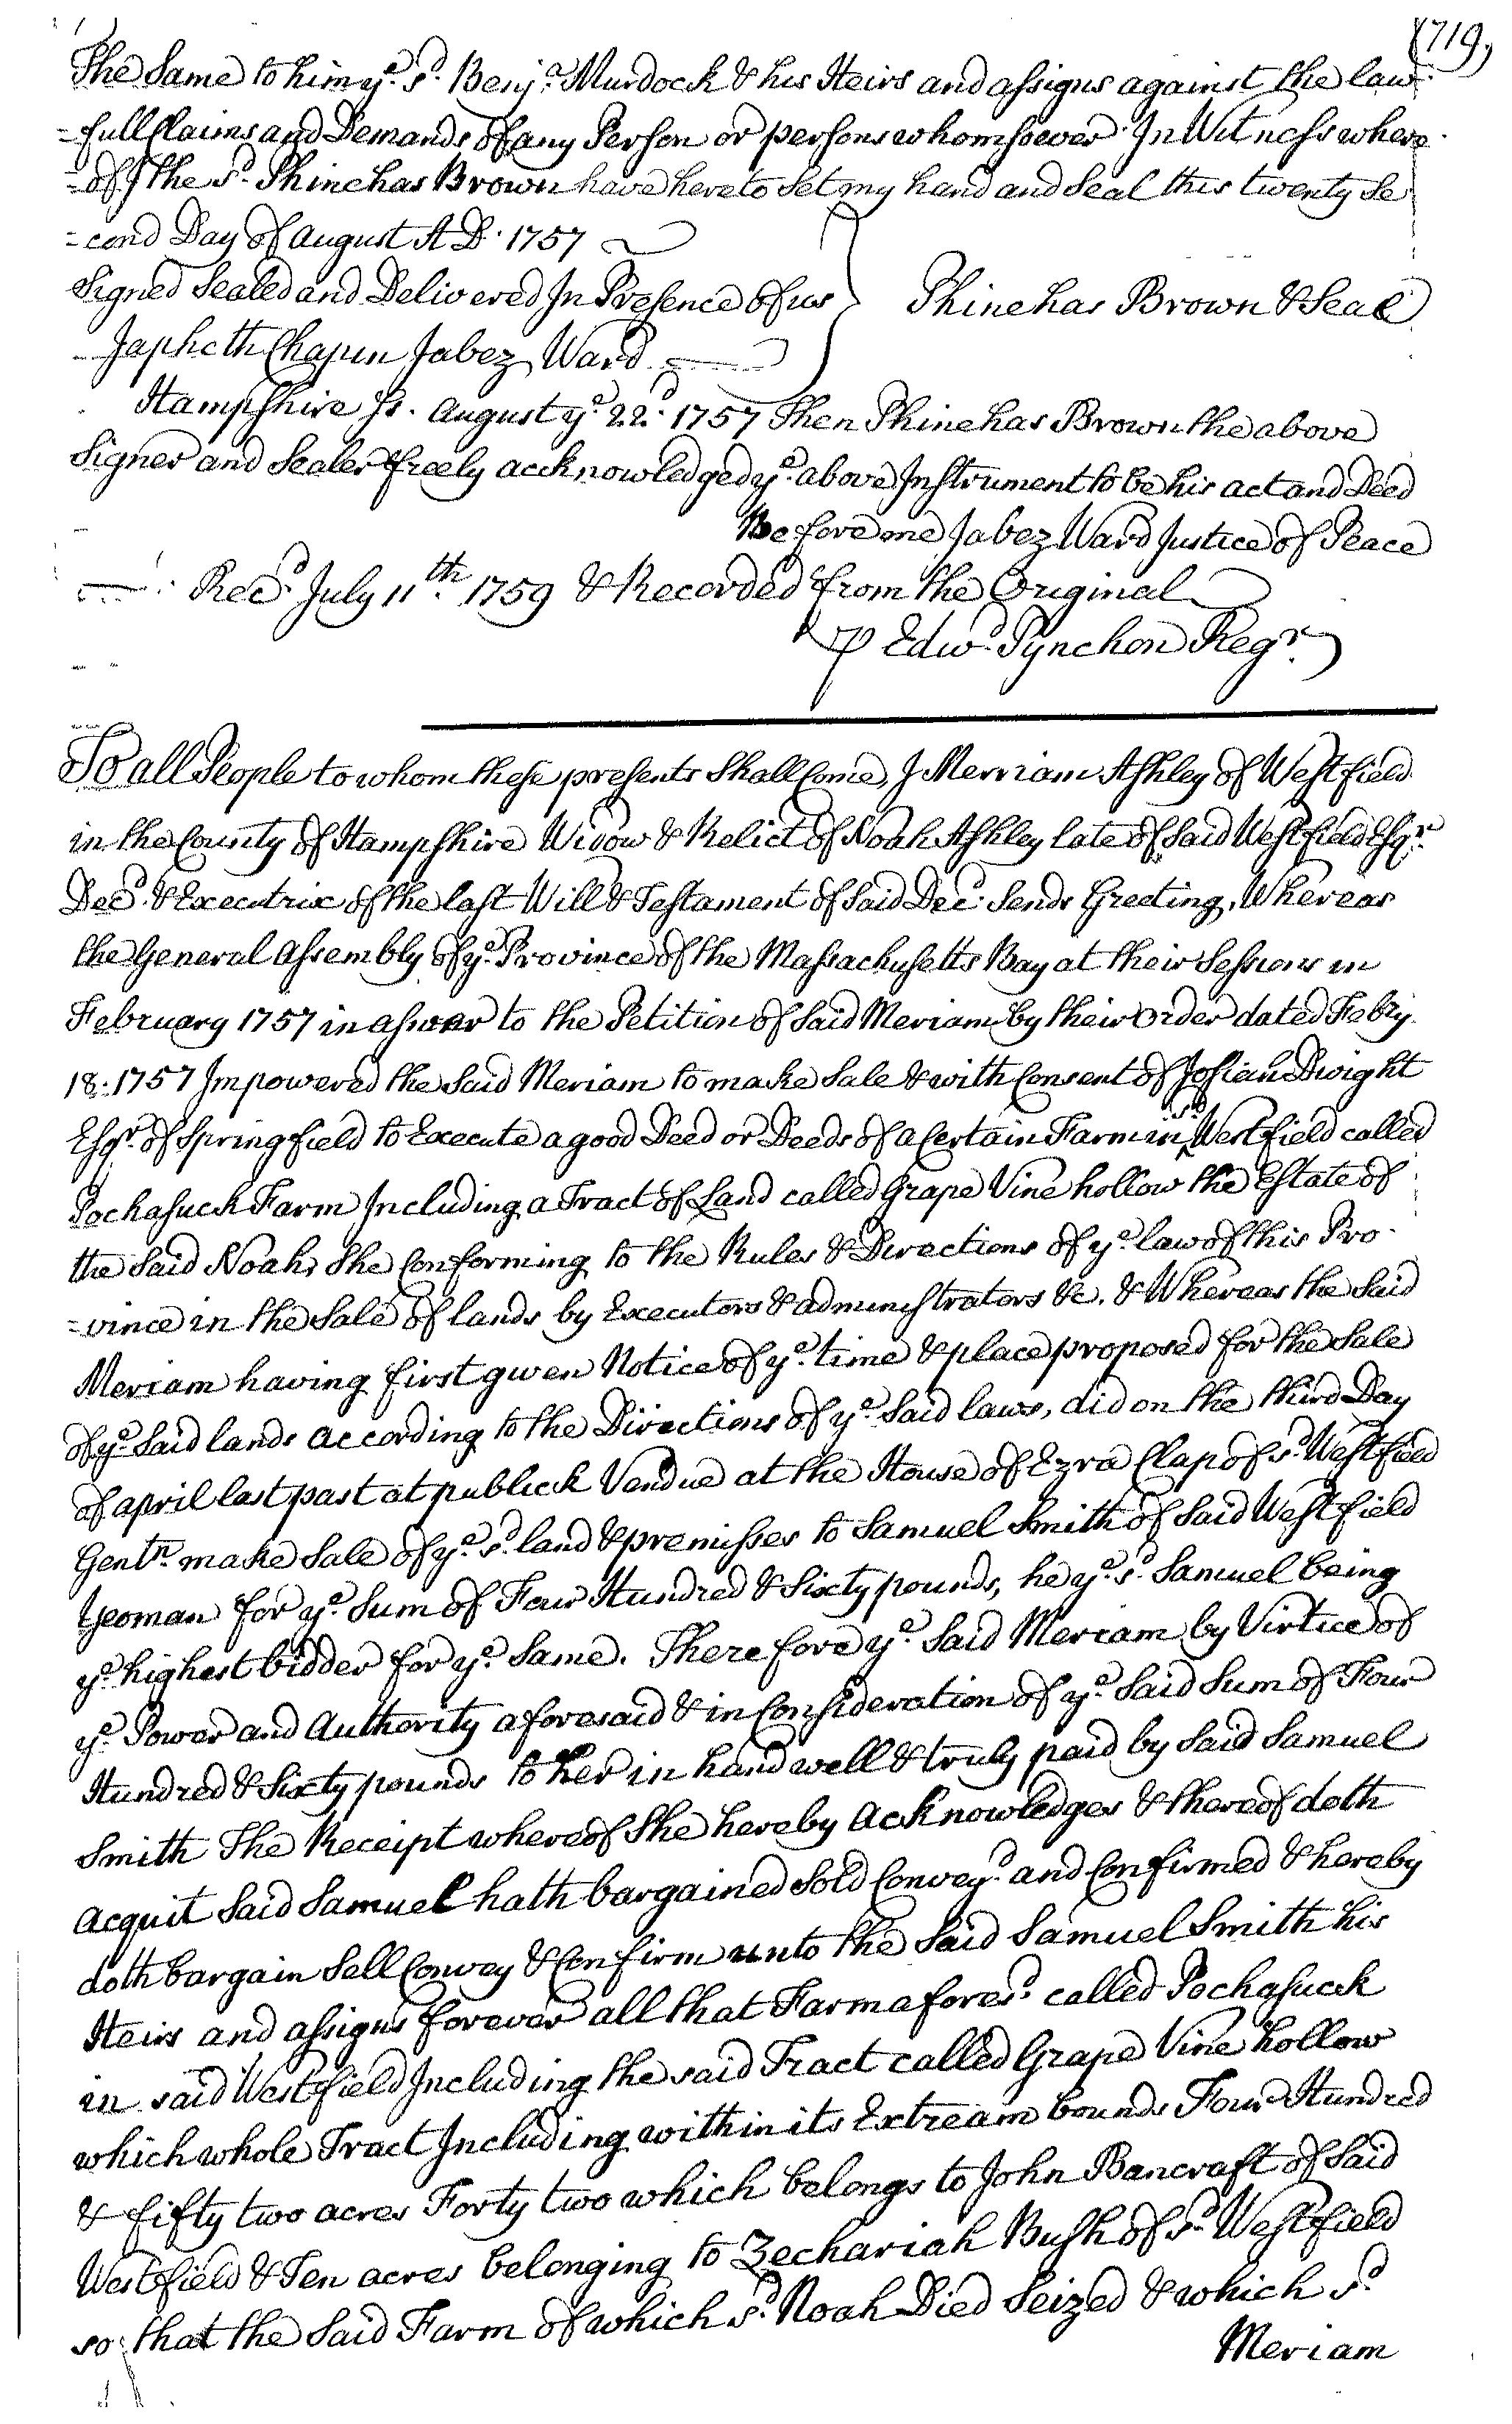 (719)
The Same to him ye. sd. Benja. Murdock & his Heirs and assigns against the law-
-full Claims and Demands of any Person or persons whomsoever. In Witness where-
-of I the sd. Phinehas Brown have hereto set my hand and Seal this twenty Se-
-cond Day of August A D. 1757
Signed Sealed and Delivered In Presence of us } Phinehas Brown & Seal
Japheth Chapin Jabez Ward
Hampshire Ss. August ye. 22d. 1757 Then Phinehas Brown the above
Signer and Sealer freely acknowledged ye. above Instrument to be his act and Deed
Before me Jabez Ward Justice of Peace
Recd. July 11th. 1759 & Recorded from the Original
P Edwd. Pynchon Regr.
To all People to whom these presents Shall Come, I Merriam Ashley of Westfield
in the County of Hampshire Widow & Relict of Noah Ashley late of Said Westfield Esqr.
Decd. & Executrix of the last Will & Testament of Said Decd. Sends Greeting, Whereas
the General Assembly of ye. Province of the Massachusetts Bay at their Sessions in
February 1757 in answer to the Petition of Said Meriam by their Order dated Febry.
18. 1757 Impowered the Said Meriam to make Sale & with Consent of Josiah Dwight
Esqr. of Springfield to Execute a good Deed or Deeds of a Certain Farm in sd. Westfield called
Pochasuck Farm Including a Tract of Land called Grape Vine hollow the Estate of
the Said Noah, She Conforming to the Rules & Directions of ye. law of this Pro-
-vince in the Sale of lands by Executors & administrators &c. & Whereas the Said
Meriam having first given Notice of ye. time & place proposed for the Sale
of ye. Said lands according to the Directions of ye. Said laws, did on the third Day
of april last past at publick Vendue at the House of Ezra Clap of sd. Westfield
Gentn. make Sale of ye. sd. land & premisses to Samuel Smith of Said Westfield
Yeoman for ye. Sum of Four Hundred & Sixty pounds, he ye. sd. Samuel being
ye. highest bidder for ye. Same. Therefore ye. Said Meriam by Virtue of
ye. Power and Authority aforesaid & in Consideration of ye. Said Sum of Four
Hundred & Sixty pounds to her in hand well & truly paid by Said Samuel
Smith The Receipt whereof She hereby acknowledges & thereof doth
acquit Said Samuel hath bargained Sold Conveyd. and Confirmed & hereby
doth bargain Sell Convey & Confirm unto the Said Samuel Smith his
Heirs and assigns forever all that Farm aforesd. called Pochasuck
in said Westfield Including the said Tract called Grape Vine hollow
which whole Tract Including within its Extream bounds Four Hundred
& fifty two acres Forty two which belongs to John Bancraft of Said
Westfield & Ten acres belonging to Zechariah Bush of sd. Westfield
so that the Said Farm of which sd. Noah Died Seized & which sd.
Meriam